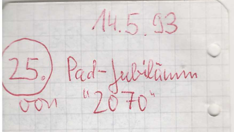 14.5.93
25. Pad-Jubiläum
von "2070"